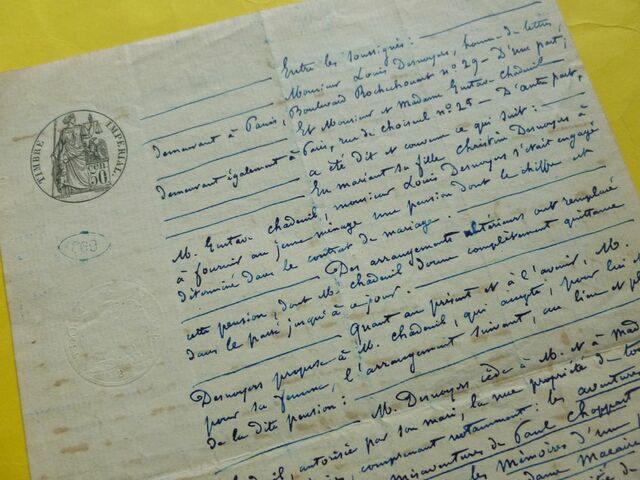 Entre les soussignés :
Monsieur Louis Desnoyers, homme de lettres,
demeurant à Paris, Boulevard Rochechouart no 29 - D'une part,
Et Monsieur et Madame Gustave Chadeuil
demeurant également à Paris, rue de choiseul no 25 - D'autre part,
a été dit et convenu ce qui suit :
En mariant sa fille Christine Desnoyers à
M. Gustave Chadeuil, monsieur Louis Desnoyers s'était engagé
à fournir au jeune ménage une pension dont le chiffre est
déterminé dans le contrat de mariage.
Des arrangements ultérieurs ont remplacé
cette pension, dont M. Chadeuil donne complètement quittance
dans le passé jusqu'à ce jour.
Quant au présent et à l'avenir, M.
Desnoyers propose à M. Chadeuil, qui accepte, pour lui et
pour sa femme, l'arrangement suivant, au lieu et
de la dite pension :
M. Desnoyers cède à M. et à Mad
autorisée par son mari, la nue propriété de
comprenant notamment : les aventures
mésaventures de Paul Choppart
les Mémoires d'une
dame Macaire
TIMBRE IMPÉRIAL
50